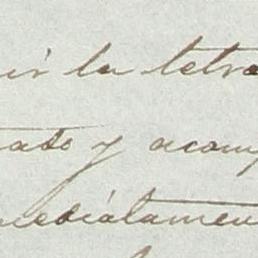 ir la letra
rato y acomp
mediatamen